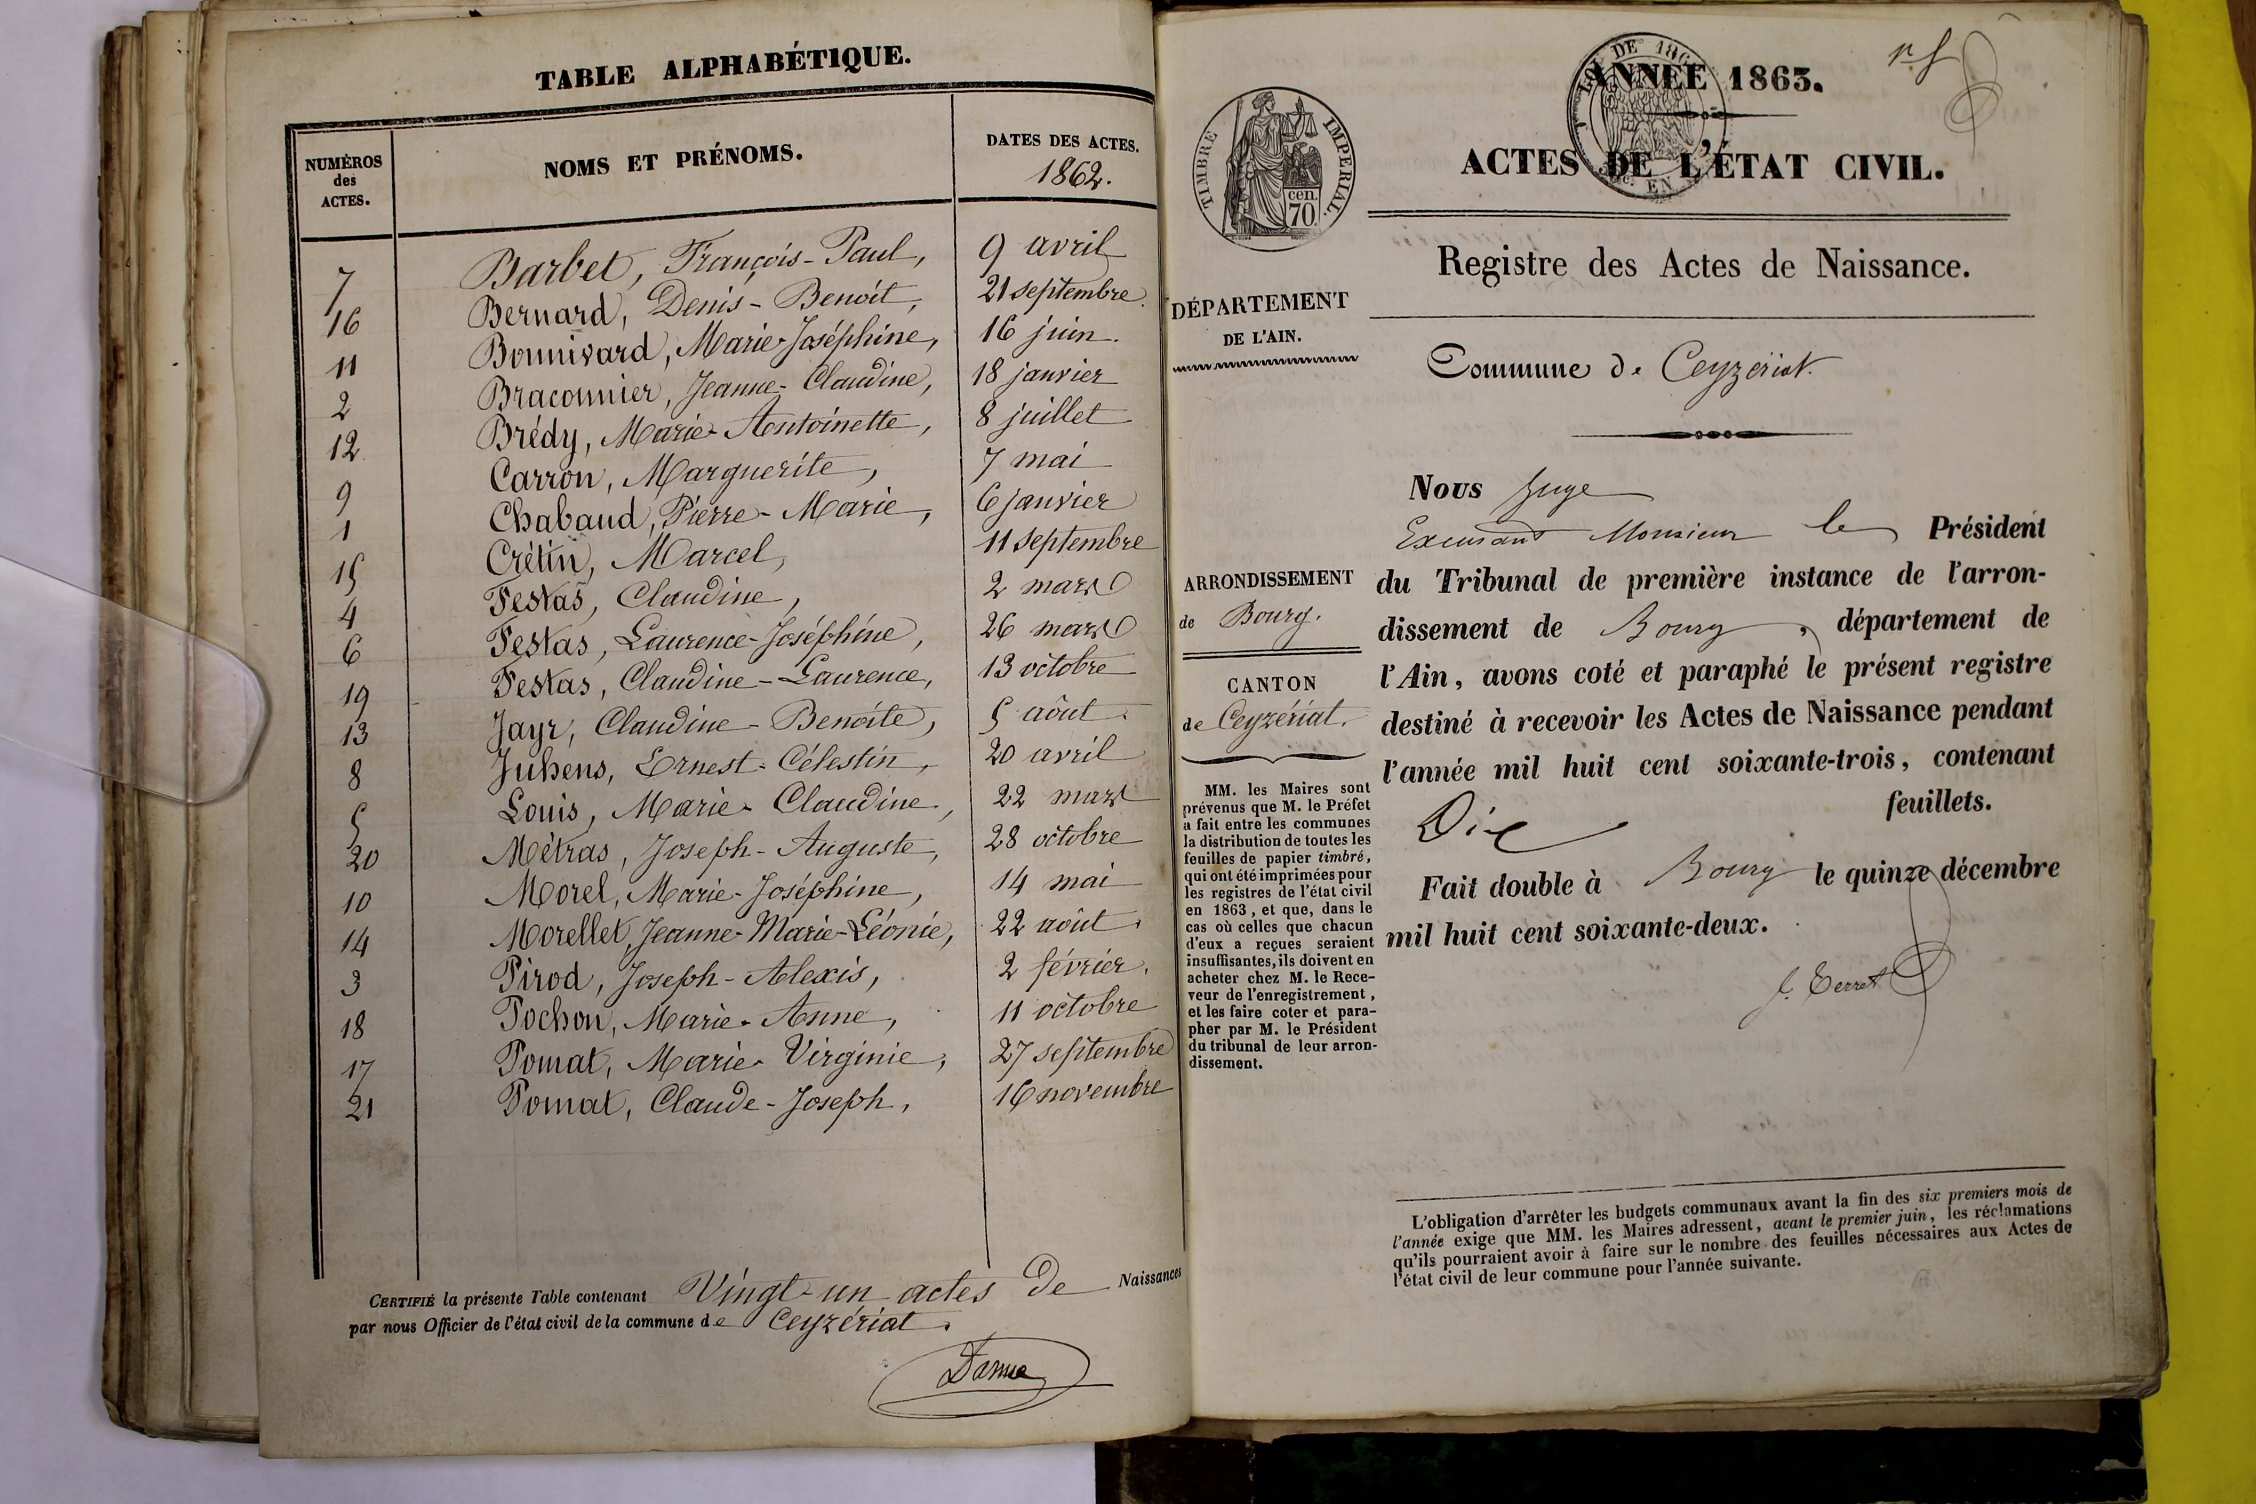 TABLE ALPHABÉTIQUE.
NUMÉROS des ACTES. NOMS ET PRÉNOMS. DATES DES ACTES. 1862.
7 Barbet, François-Paul, 9 avril
16 Bernard, Denis-Benoit, 21 septembre
11 Bonnivard, Marie-Joséphine, 16 juin.
2 Braconnier, Jeanne-Claudine, 18 janvier
12 Brédy, Marie-Antoinette, 8 juillet
9 Carron, Marguerite, 7 mai
1 Chabaud, Pierre-Marie, 6 janvier
15 Crétin, Marcel, 11 septembre
4 Festas, Claudine, 2 mars
6 Festas, Laurence-Joséphine, 26 mars
19 Festas, Claudine-Laurence, 13 octobre
13 Jayr, Claudine-Benoite, 5 aôut.
8 Juhens, Ernest-Célestin, 20 avril
5 Louis, Marie-Claudine, 22 mars
20 Métras, Joseph-Auguste, 28 octobre
10 Morel, Marie-Joséphine, 14 mai
14 Morellet, Jeanne-Marie-Léonie, 22 aôut.
3 Pirod, Joseph-Alexis, 2 février.
18 Pochon, Marie-Anne, 11 octobre
17 Pomat, Marie-Virginie, 27 septembre
21 Pomat, Claude-Joseph, 16 novembre
CERTIFIÉ la présente Table contenant Vingt-un actes de Naissances
par nous Officier de l'état civil de la commune de Ceyzériat.
TIMBRE IMPERIAL.
cen. 70
DE 186
EN
ANNÉE 1863.
ACTES DE L'ÉTAT CIVIL.
Registre des Actes de Naissance.
DÉPARTEMENT
DE L'AIN.
Commune de Ceyzériat.
ARRONDISSEMENT
de Bourg.
CANTON
de Ceyzériat.
MM. les Maires sont
prévenus que M. le Préfet
a fait entre les communes
la distribution de toutes les
feuilles de papier timbré,
qui ont été imprimées pour
les registres de l'état civil
en 1863, et que, dans le
cas où celles que chacun
d'eux a reçues seraient
insuffisantes, ils doivent en
acheter chez M. le Rece-
veur de l'enregistrement,
et les faire coter et para-
pher par M. le Président
du tribunal de leur arron-
dissement.
Nous Juge
Excusant Monsieur le Président
du Tribunal de première instance de l'arron-
dissement de Bourg, département de
l'Ain, avons coté et paraphé le présent registre
destiné à recevoir les Actes de Naissance pendant
l'année mil huit cent soixante-trois, contenant
Dix feuillets.
Fait double à Bourg le quinze décembre
mil huit cent soixante-deux.
L'obligation d'arrêter les budgets communaux avant la fin des six premiers mois de
l'année exige que MM. les Maires adressent, avant le premier juin, les réclamations
qu'ils pourraient avoir à faire sur le nombre des feuilles nécessaires aux Actes de
l'état civil de leur commune pour l'année suivante.